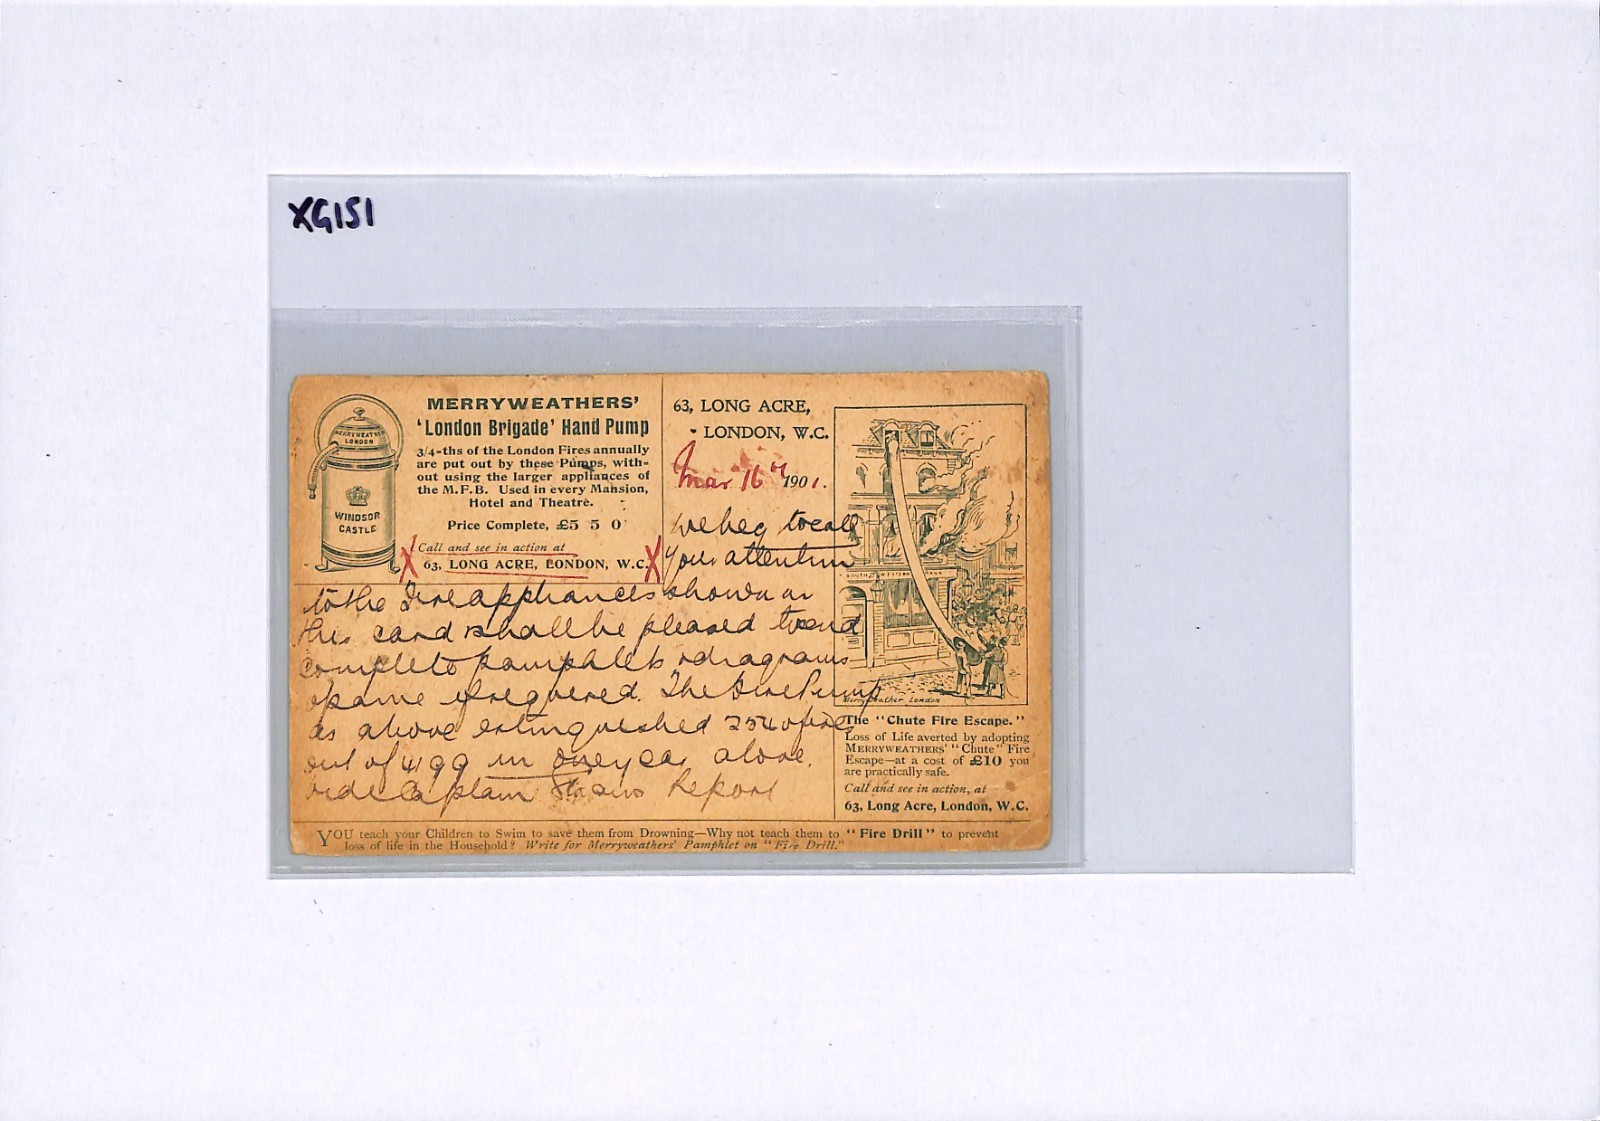 XG151
MERRYWEATHERS'
'London Brigade' Hand Pump
3/4-ths of the London Fires annually
are put out by these Pumps, with-
out using the larger appliances of
the M.F.B. Used in every Mansion,
Hotel and Theatre.
Price Complete, £5 5 0
Call and see in action at
63, LONG ACRE, LONDON, W.C.
MERRYWEATHER
LONDON
WINDSOR
CASTLE
63, LONG ACRE,
LONDON, W.C.
Mar 16th 1901.
We beg to call
your attention
to the Fire appliances shown on
this card & shall be pleased to send
complete pamphlets & diagrams
of same if required. The Fire Pump
as above extinguished 2540 fires
out of 4199 in one year alone.
vide Captain Report
Merryweather London
The "Chute Fire Escape."
Loss of Life averted by adopting
MERRYWEATHERS' "Chute" Fire
Escape—at a cost of £10 you
are practically safe.
Call and see in action, at
63, Long Acre, London, W.C.
YOU teach your Children to Swim to save them from Drowning—Why not teach them to "Fire Drill" to prevent
loss of life in the Household? Write for Merryweathers' Pamphlet on "Fire Drill."